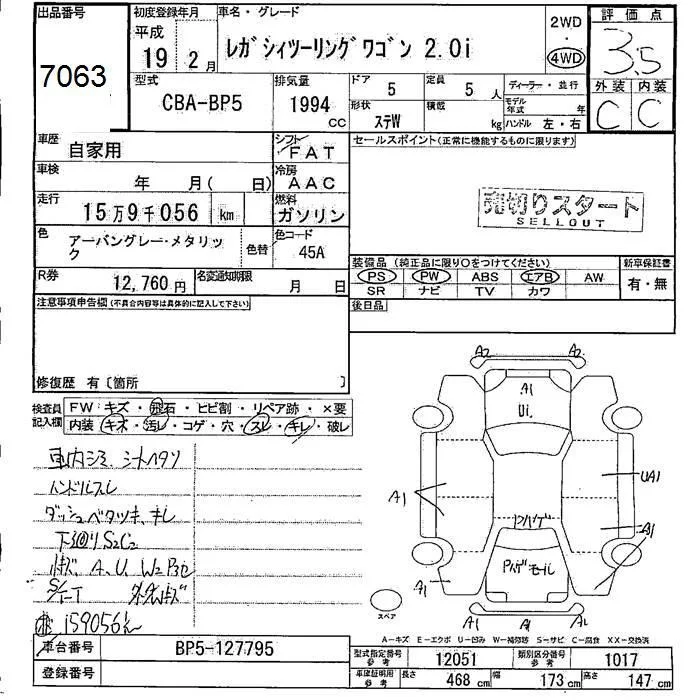 出品番号
7063
初度登録年月
平成
19 2月
車名・グレード
レガシィツーリングワゴン 2.0i
2WD
4WD
評価点
3.5
外装 内装
C C
型式
CBA-BP5
排気量
1994 CC
ドア
5
定員
5 人
形状
ステW
積載
kg
ディーラー・並行
モデル年式 年
ハンドル 左・右
車歴
自家用
シフト
FAT
セールスポイント(正常に機能するものに限ります)
車検
年 月( 日)
冷房
AAC
走行
15万9千056 km
燃料
ガソリン
売切りスタート
SELLOUT
色
アーバングレー・メタリック
色替
色コード
45A
装備品 (純正品に限り○をつけてください)
PS PW ABS エアB AW
SR ナビ TV カワ
新車保証書
有・無
R券
12,760円
名変通知期限
月 日
後日品
注意事項申告欄(不具合内容等は具体的に記入して下さい)
修復歴 有〔箇所 〕
検査員記入欄
FW:キズ・飛石・ヒビ割・リペア跡・×要
内装:キズ・汚レ・コゲ・穴・スレ・キレ・破レ
車内シミ シートヘタリ
ハンドルスレ
ダッシュベタツキ、キレ
下廻りS2C2
A、U、W2
159056
A2 A2
A1
U1
UA1
A1
A1
A1
A1
スペア
A-キズ E-エクボ U-凹み W-補修跡 S-サビ C-腐食 XX-交換済
車台番号
BP5-127795
登録番号
型式指定番号
参考
12051
類別区分番号
参考
1017
車庫証明用
参考
長さ 468 cm 幅 173 cm 高さ 147 cm